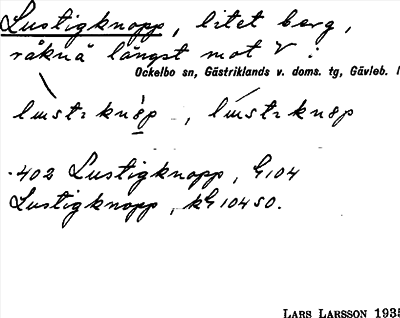 Lustigknopp, litet berg,
råknå längst mot V:
Ockelbo sn, Gästriklands v. doms. tg, Gävleb. l
402 Lustigknopp, G104
Lustigknopp, kG10450.
LARS LARSSON 1935